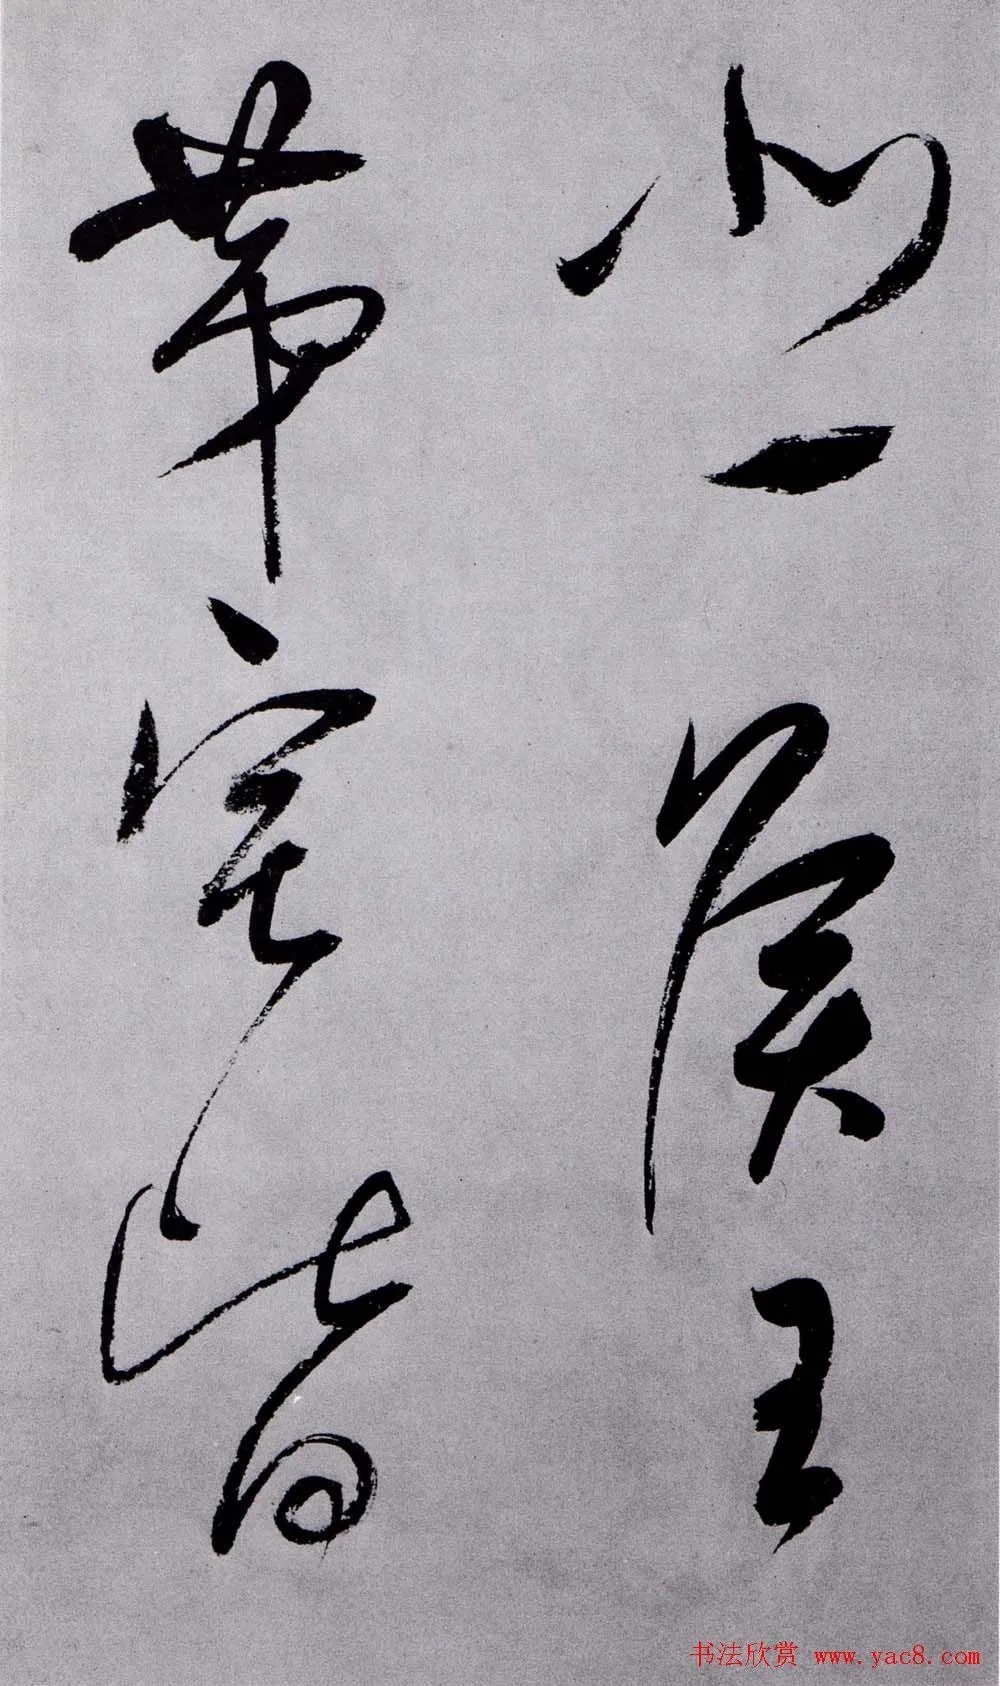 悲侯王
苐宅皆
书法欣赏 www.yac8.com